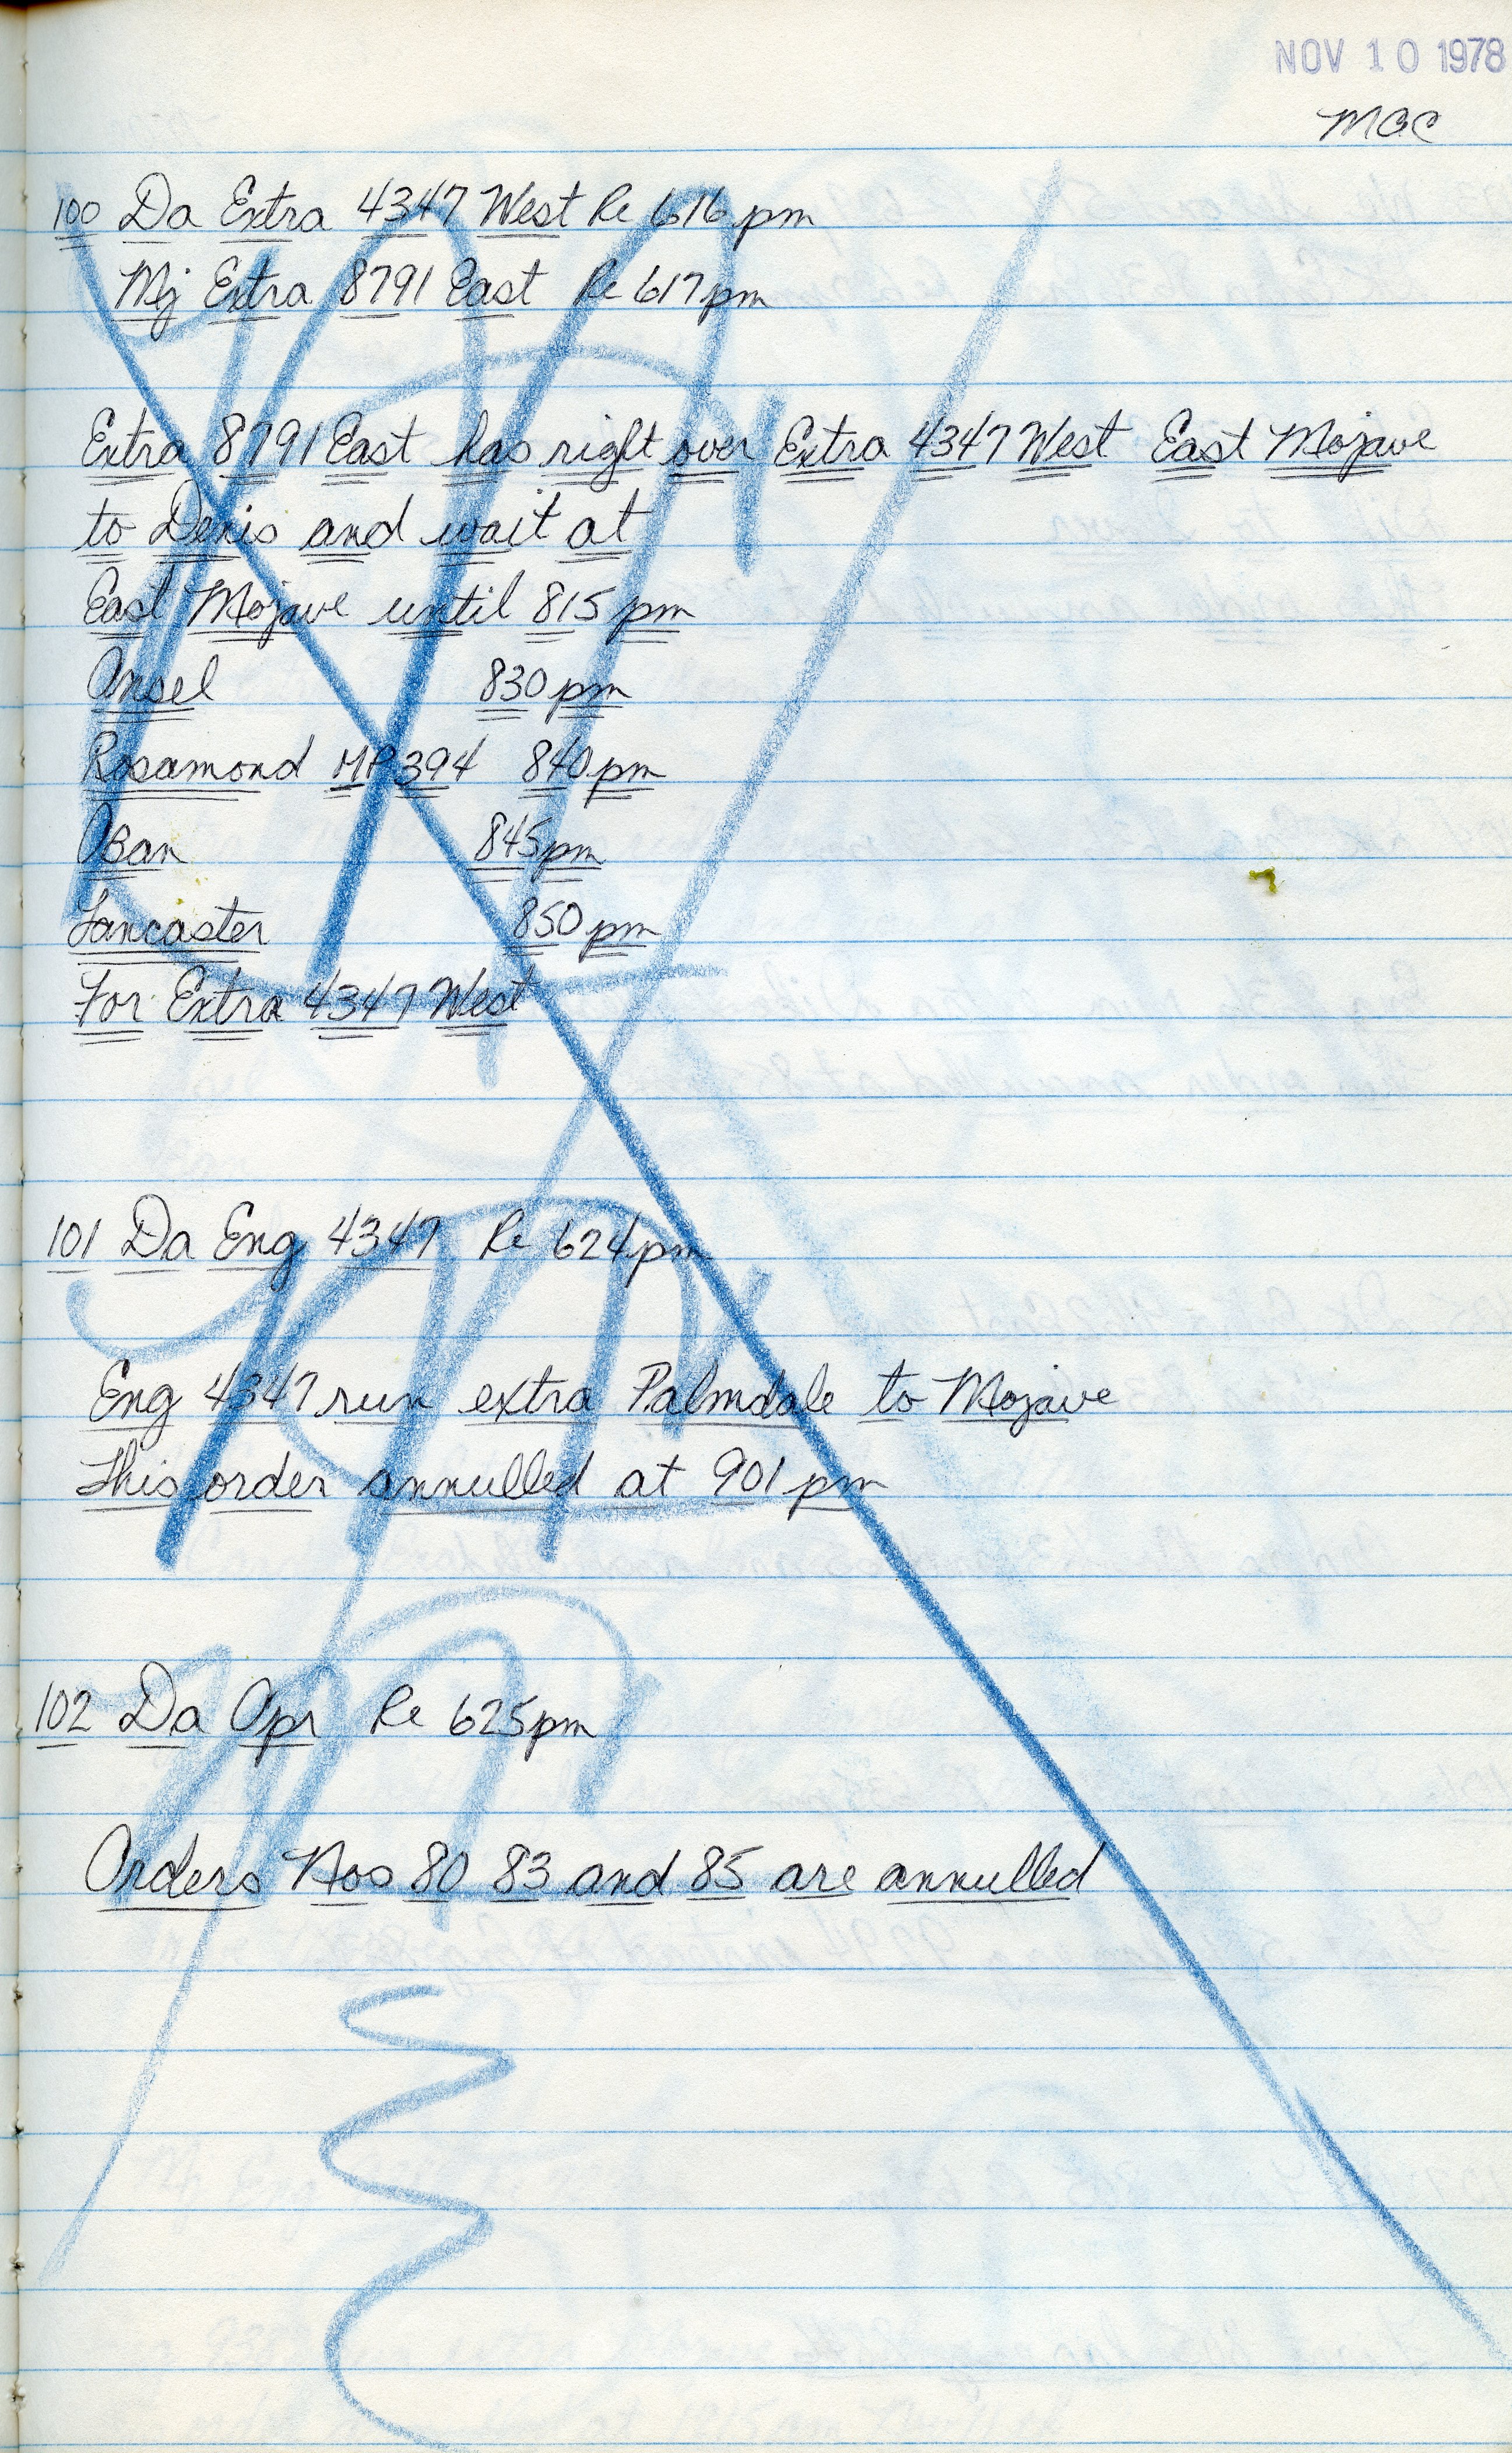 NOV 10 1978
MGC
100 Da Extra 4347 West Re 616 pm
Mj Extra 8791 East Re 617 pm
Extra 8791 East has right over Extra 4347 West East Mojave
to Denis and wait at
East Mojave until 815 pm
Ansel 830 pm
Rosamond MP 394 840 pm
Oban 845 pm
Lancaster 850 pm
For Extra 4347 West
101 Da Eng 4347 Re 624 pm
Eng 4347 run extra Palmdale to Mojave
This order annulled at 901 pm
102 Da Opr Re 625 pm
Orders Nos 80 83 and 85 are annulled